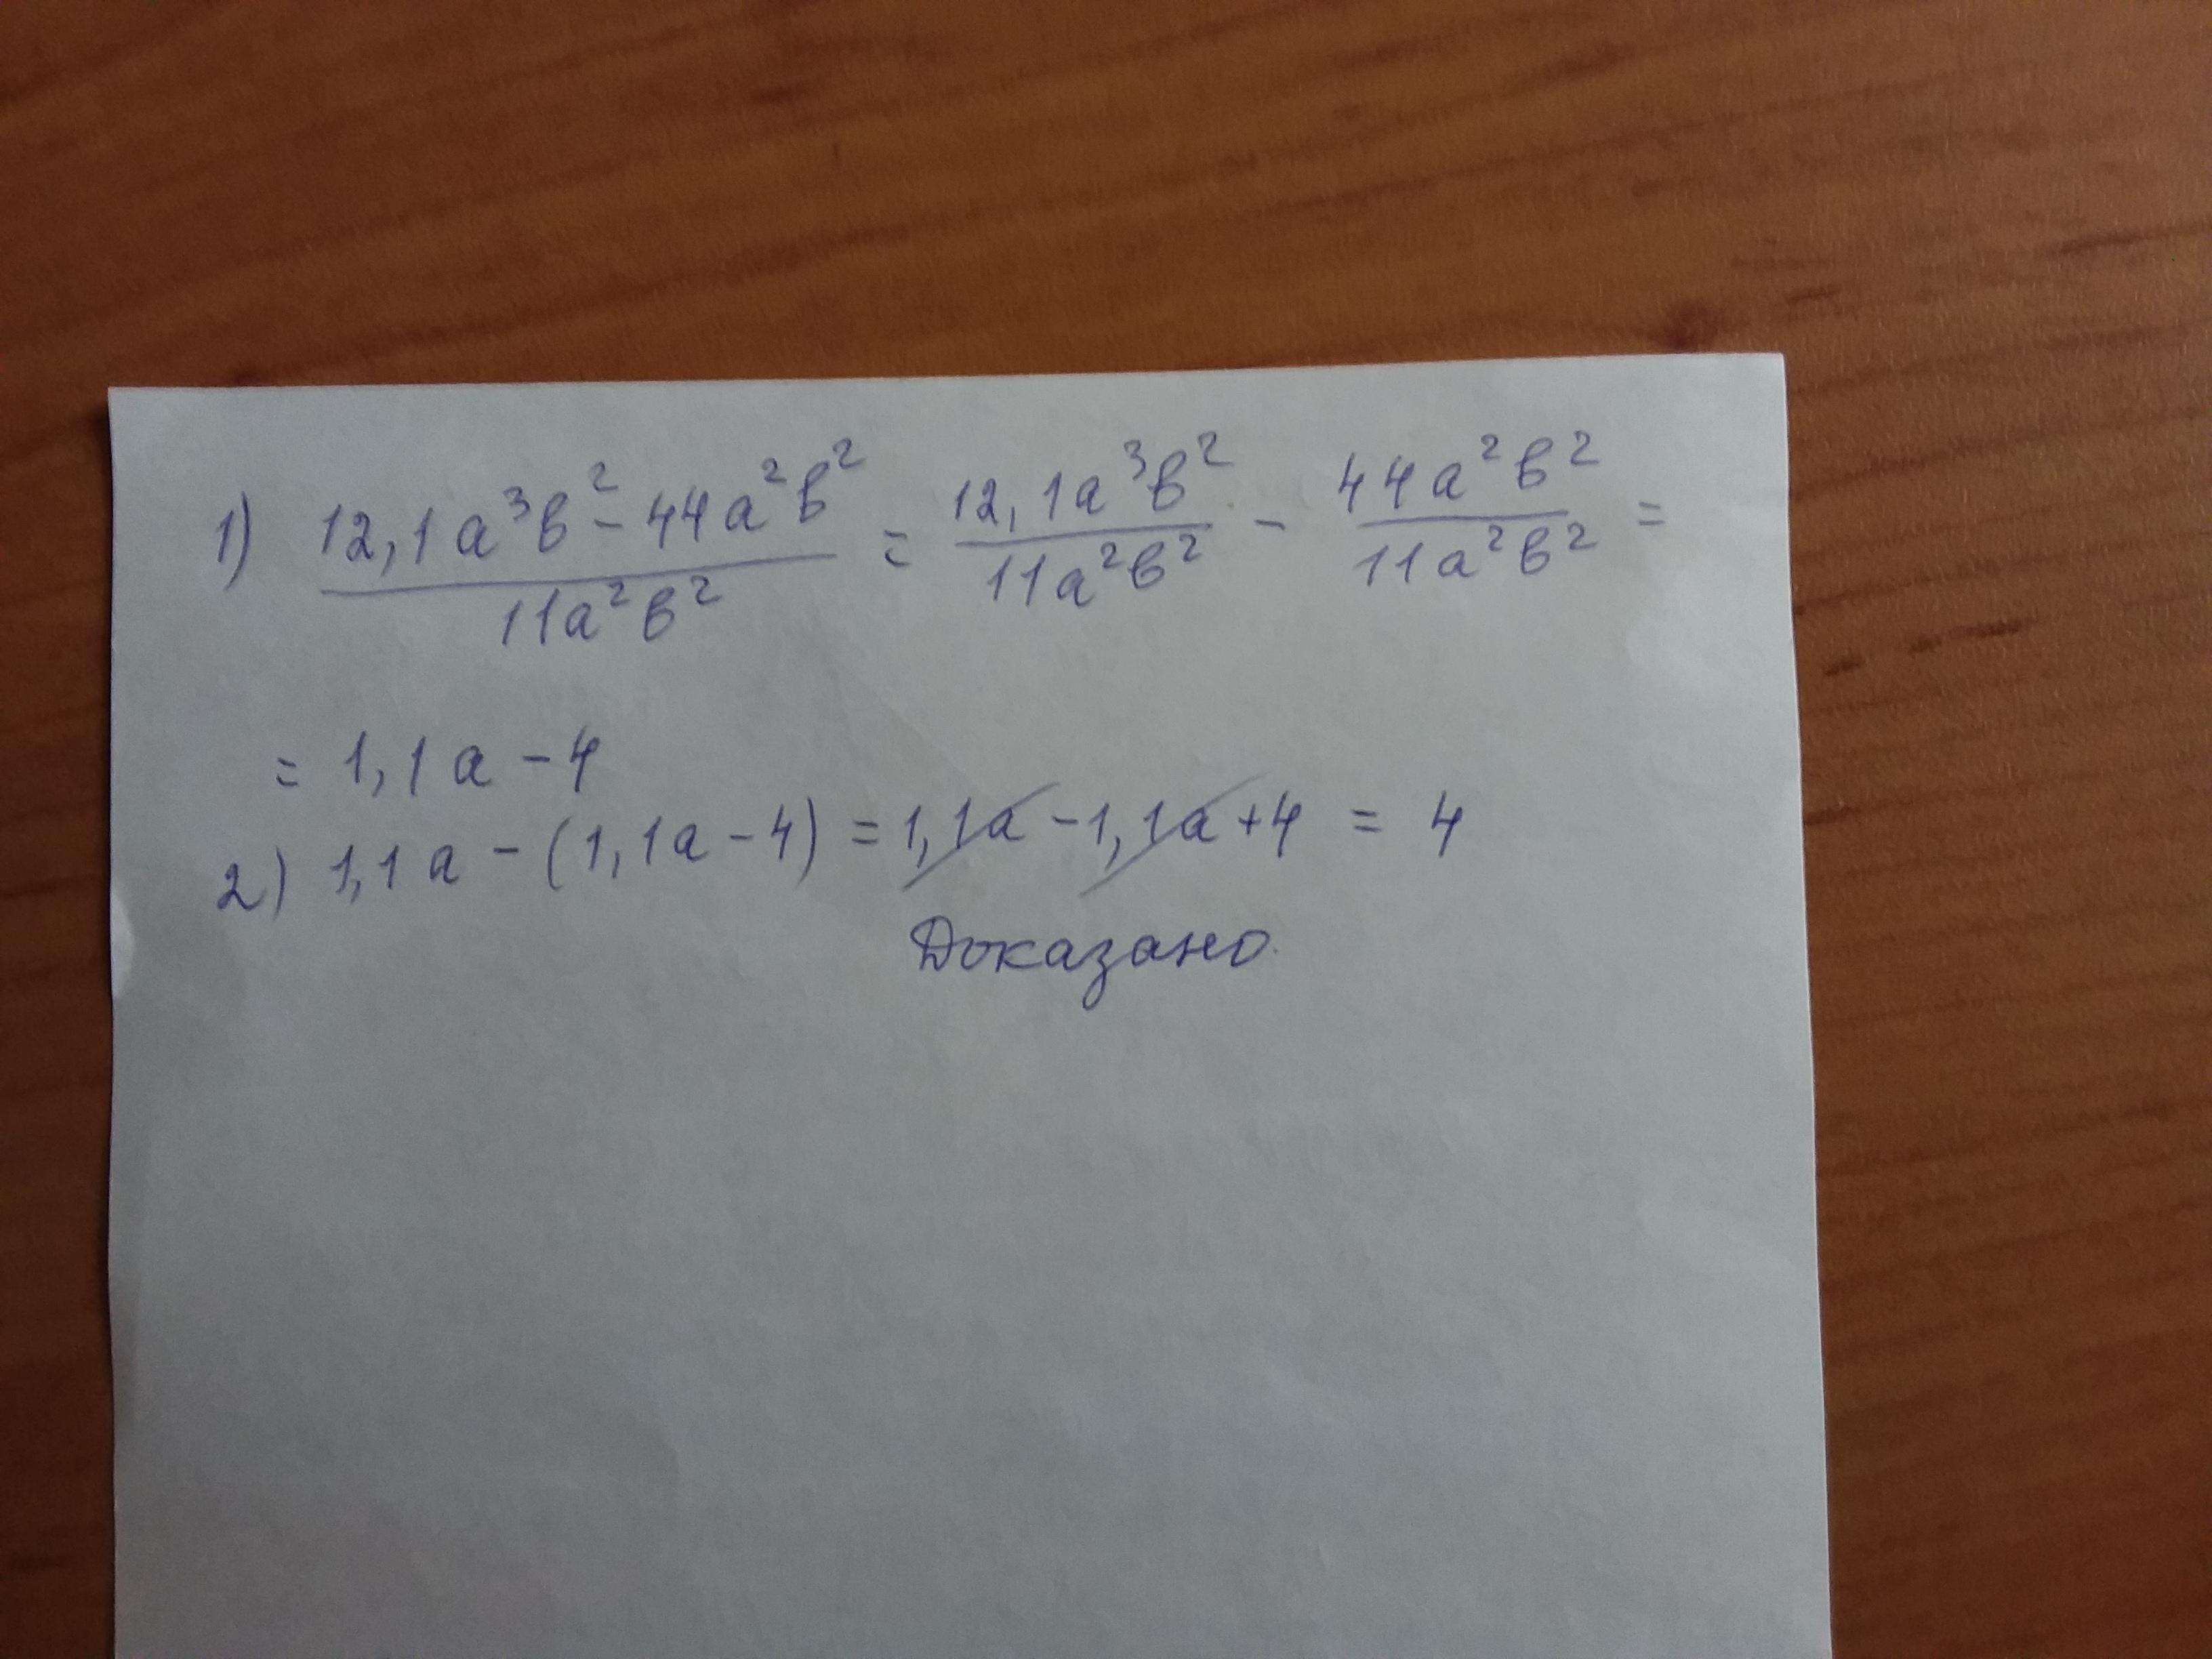 1) (12,1a³в² - 44a²в²)/(11a²в²) = (12,1a³в²)/(11a²в²) - (44a²в²)/(11a²в²) =
= 1,1a - 4
2) 1,1a - (1,1a - 4) = 1,1a - 1,1a + 4 = 4
Доказано.